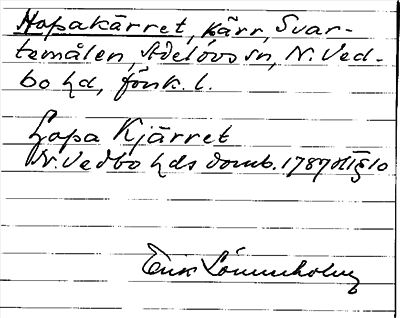 Hopakärret, kärr, Svar-
temålen, Adelövs sn, N. Ved-
bo hd, Jönk. l.
Hopa Kjärret
N. Vedbo hds domb. 1787 § 10
Erik Lönnholm